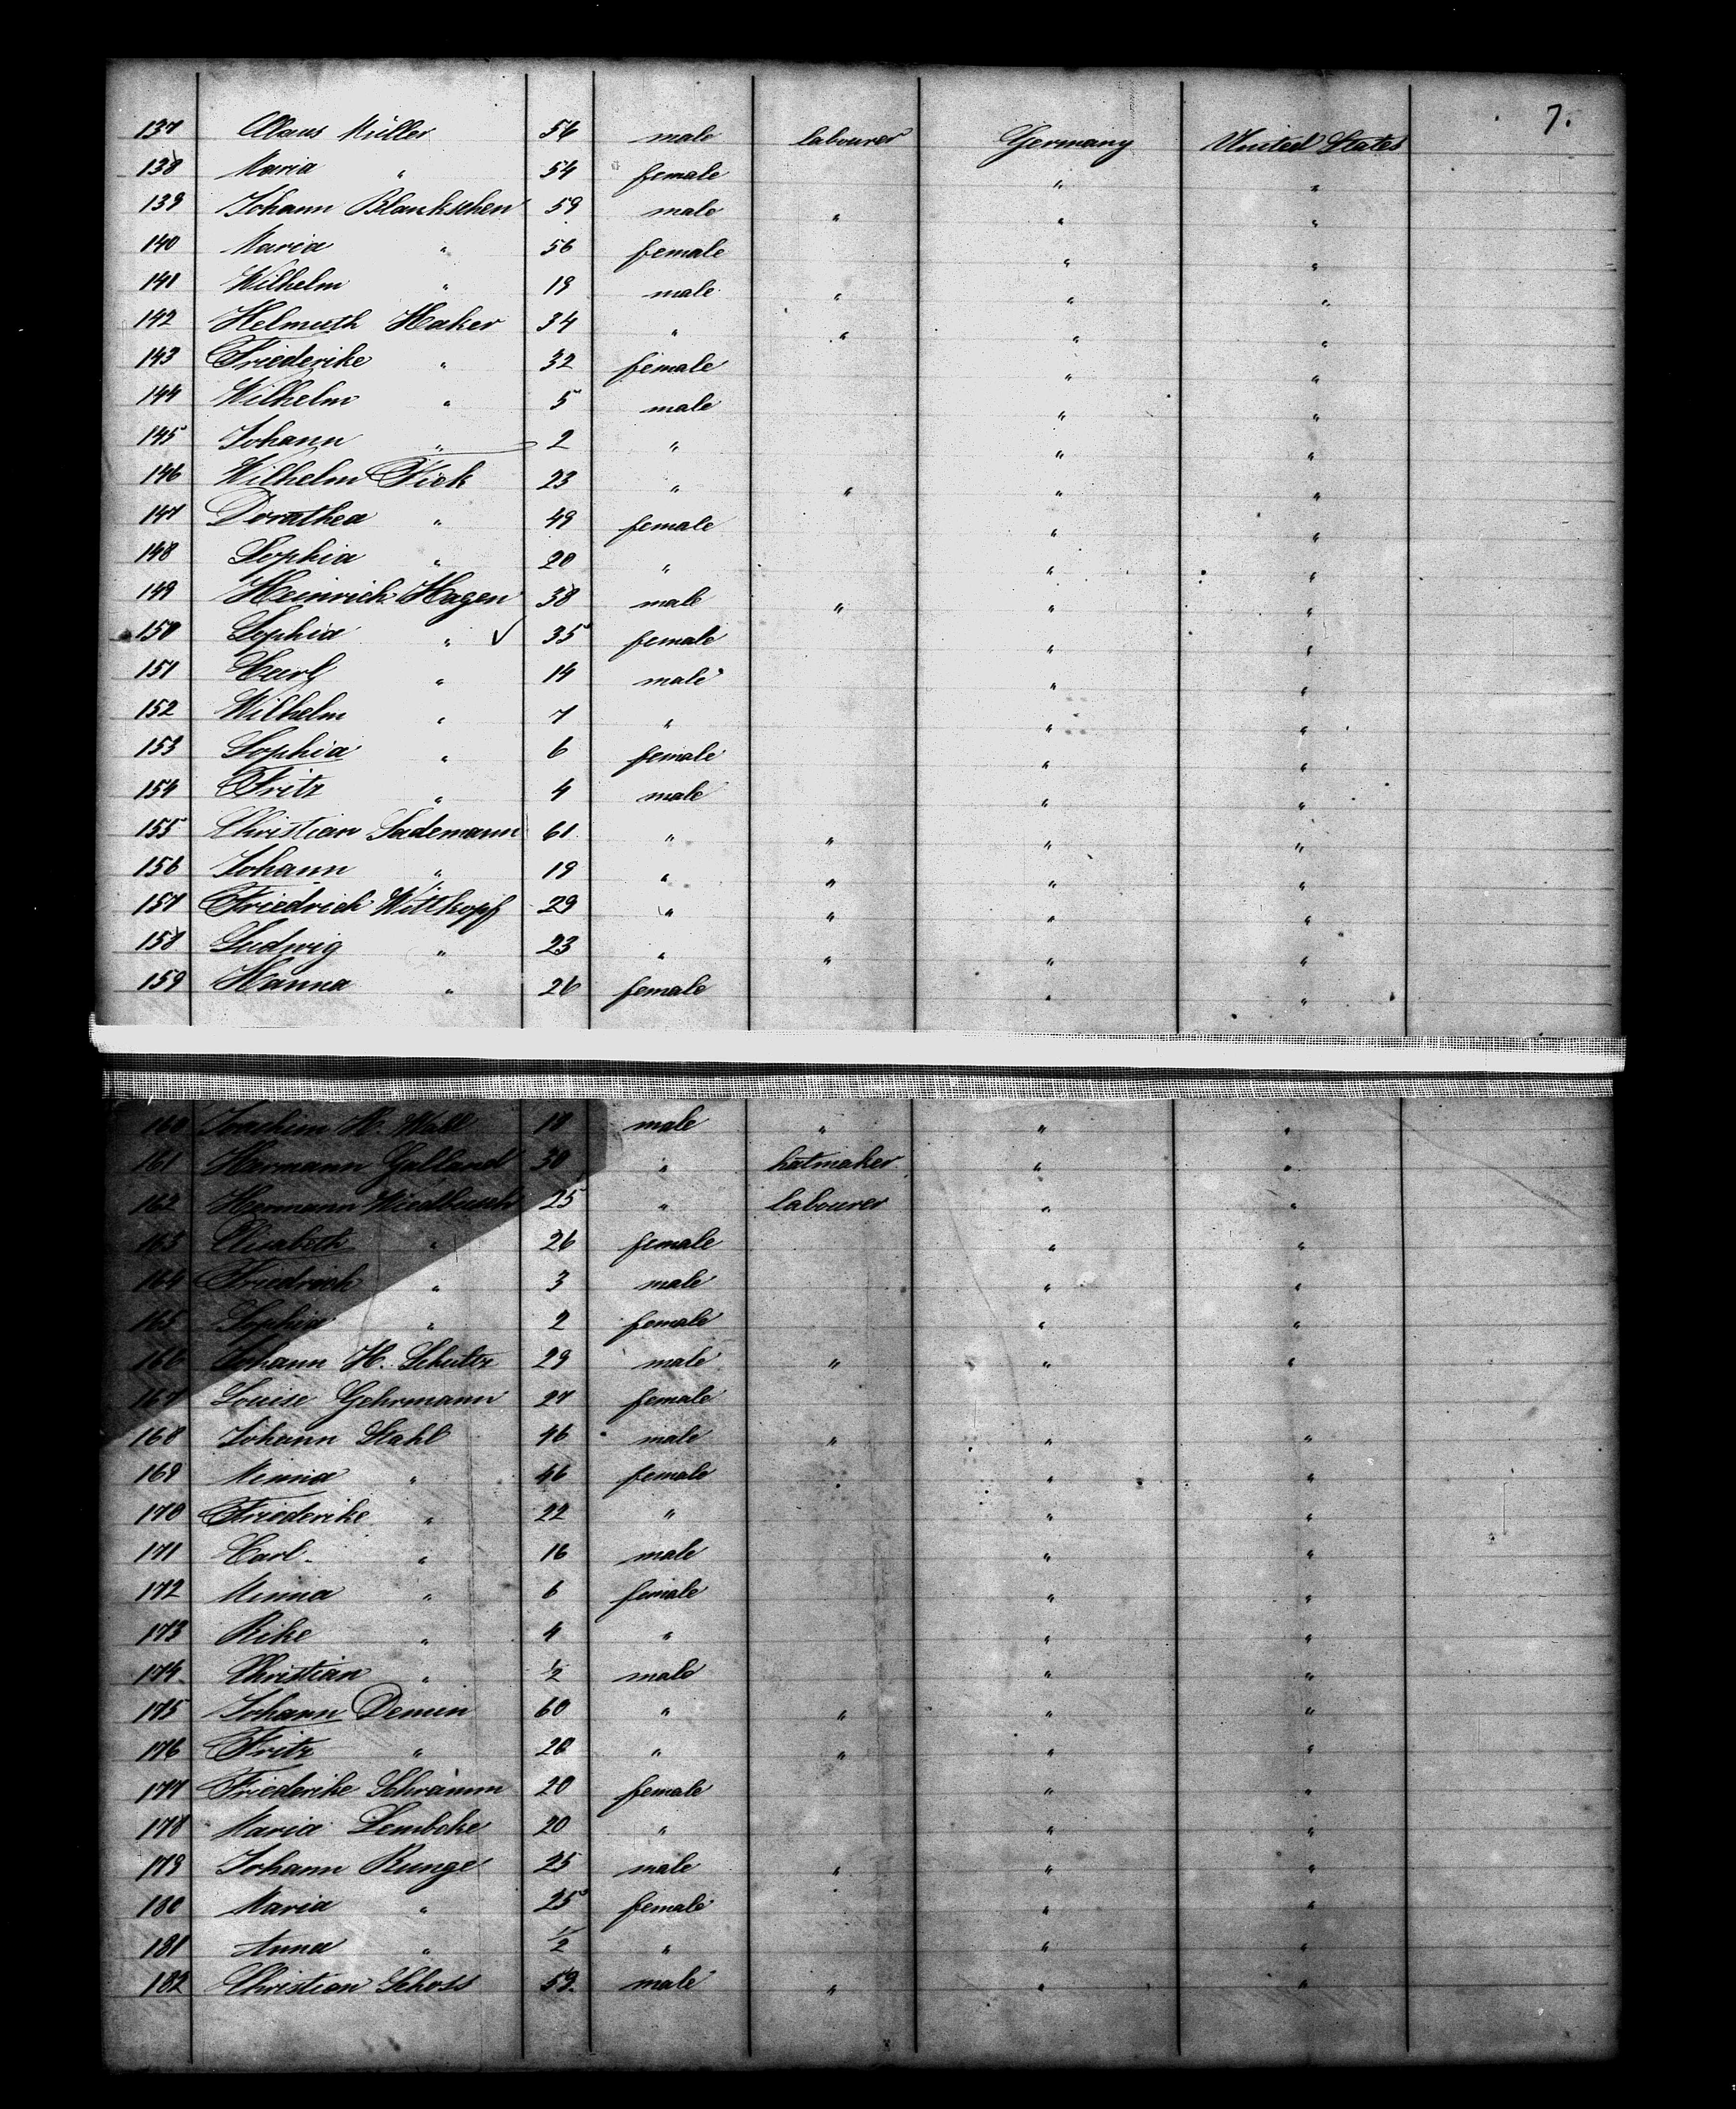 7.
137 Claus Müller 56 male labourer Germany United States
138 Maria " 54 female " "
139 Johann Blankschen 59 male " " "
140 Maria " 56 female " "
141 Wilhelm " 19 male " " "
142 Helmuth Haker 34 " " " "
143 Friederike " 32 female " "
144 Wilhelm " 5 male " "
145 Johann " 2 " " "
146 Wilhelm Fick 23 " " " "
147 Dorathea " 49 female " "
148 Sophia " 20 " " "
149 Heinrich Hagen 38 male " " "
150 Sophia " 35 female " "
151 Carl " 14 male " "
152 Wilhelm " 7 " " "
153 Sophia " 6 female " "
154 Fritz " 4 male " "
155 Christian Lademann 61 " " " "
156 Johann " 19 " " " "
157 Friedrich Wittkopf 29 " " " "
158 Ludwig " 23 " " " "
159 Hanna " 26 female " "
160 Joachim H. Wall 18 male " " "
161 Hermann Galland 30 " hatmaker " "
162 Hermann 25 " labourer " "
163 Elisabeth " 26 female " "
164 Friedrich " 3 male " "
165 Sophia " 2 female " "
166 Johann H. Schultz 29 male " " "
167 Louise Gehrmann 27 female
168 Johann Stahl 46 male " " "
169 Minna " 46 female " "
170 Friederike " 22 " " "
171 Carl " 16 male " "
172 Minna " 6 female " "
173 Rike " 4 " " "
174 Christian " 1/2 male " "
175 Johann Demin 60 " " " "
176 Fritz " 20 " " " "
177 Friederike Schramm 20 female " "
178 Maria Lembcke 20 " " "
179 Johann Runge 25 male " " "
180 Maria " 25 female " "
181 Anna " 1/2 " " "
182 Christian Schoss 59 male " " "